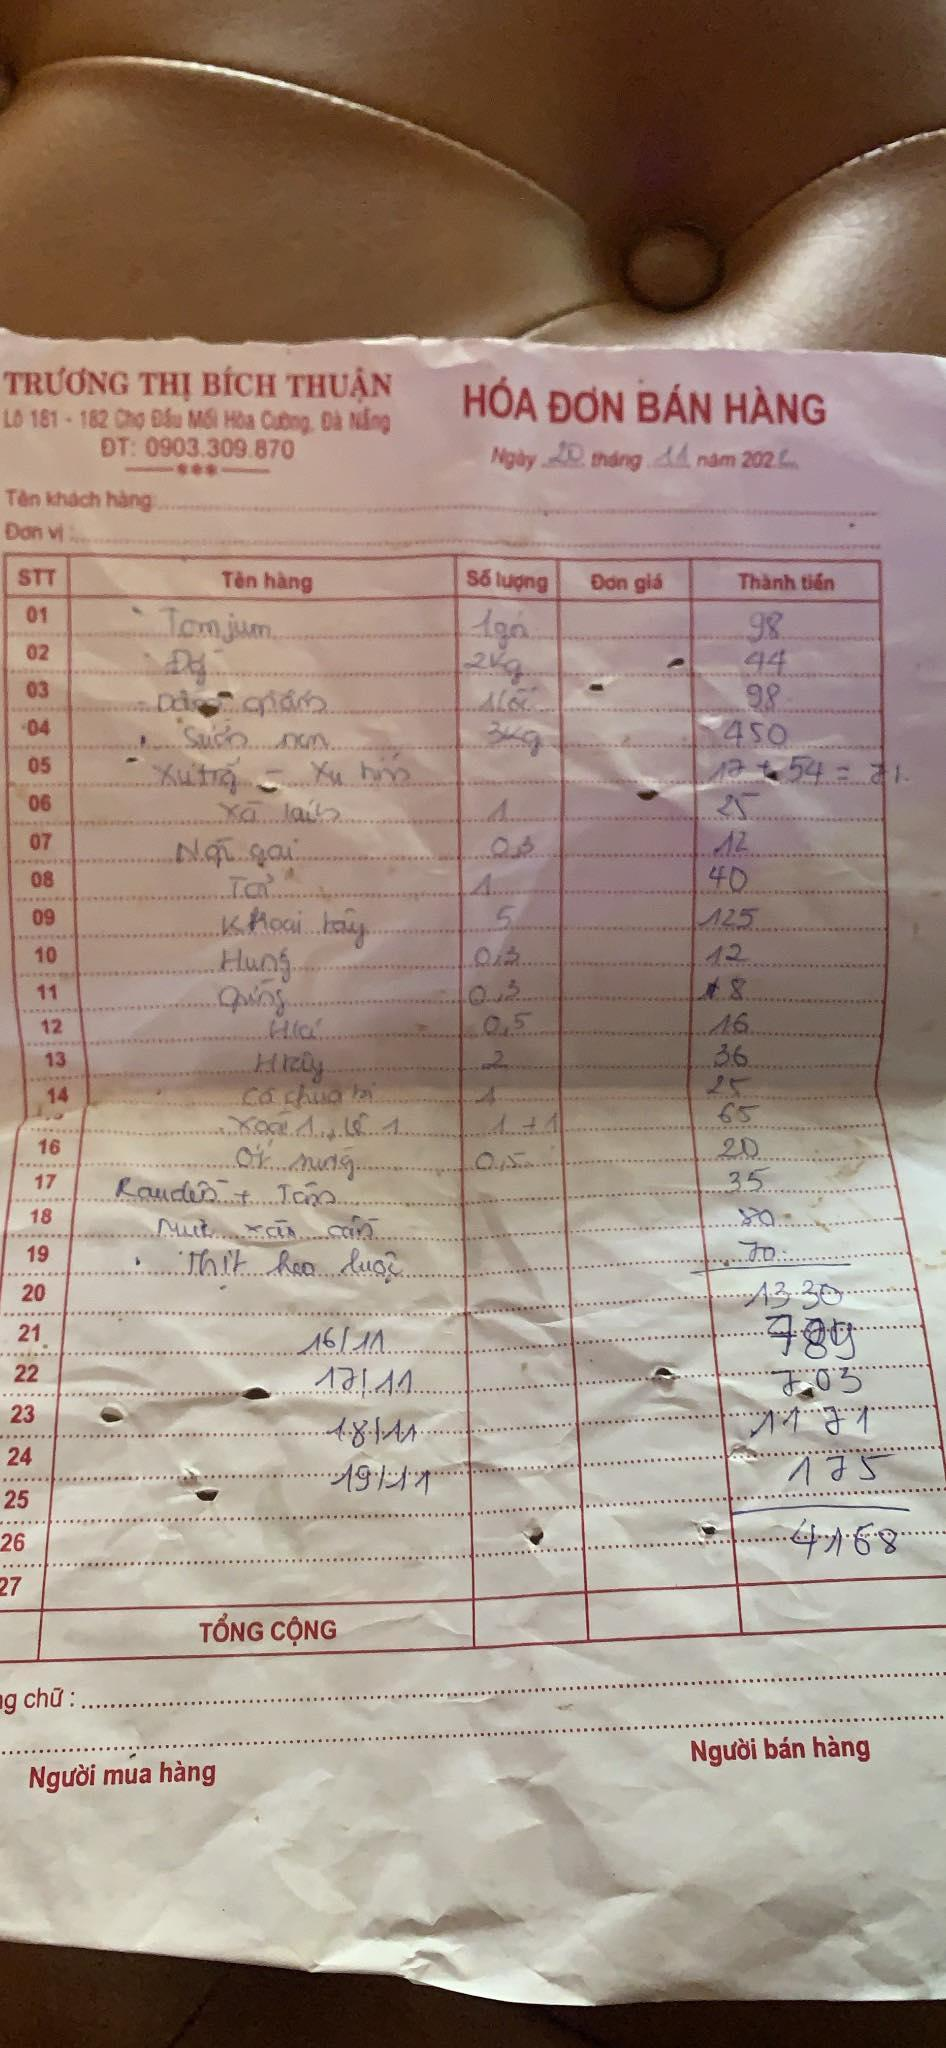 TRƯƠNG THỊ BÍCH THUẬN
HÓA ĐƠN BÁN HÀNG
Lô 181 - 182 Chợ Đầu Mối Hòa Cường, Đà Nẵng
ĐT: 0903.309.870
Ngày 20 tháng 11 năm 202
Tên khách hàng:
Đơn vị :
STT Tên hàng Số lượng Đơn giá Thành tiền
01 Tomjum 1gói 98
02 2kg 44
03 98
04 Sườn non 3kg 450
05 17 + 54 = 71
06 1 25
07 Ngò gai 0,3 12
08 Tỏi 1 40
09 Khoai tây 5 125
10 Húng 0,3 12
11 0,3 8
12 H lá 0,5 16
13 H tây 2 36
14 Cà chua bi 1 25
Xoài 1, lê 1 1 + 1 65
16 Ớt sừng 0,5 20
17 35
18 80
19 Thịt heo luộc 70
20 1330
21 16/11 789
22 17/11 703
23 18/11 1171
24 19/11 175
25
26 4168
27
TỔNG CỘNG
ng chữ :
Người mua hàng
Người bán hàng